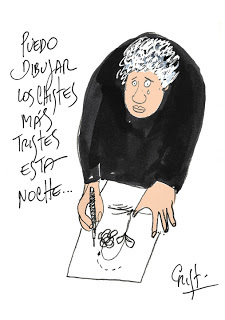 PUEDO
DIBUJAR
LOS CHISTES
MÁS
TRISTES
ESTA
NOCHE...
Crist.